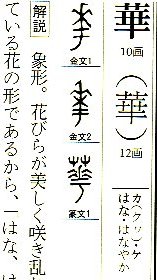 華
10画
（華）
12画
カ（クヮ）・ケ
はな・はなやか
金文1
金文2
篆文1
解説 象形。花びらが美しく咲き乱
ている花の形であるから、「はな、は